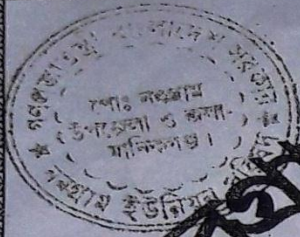 গণপ্রজাতন্ত্রী বাংলাদেশ সরকার
পোঃ নবগ্রাম
উপজেলা ও জেলা-
মানিকগঞ্জ।
নবগ্রাম ইউনিয়ন পরিষদ